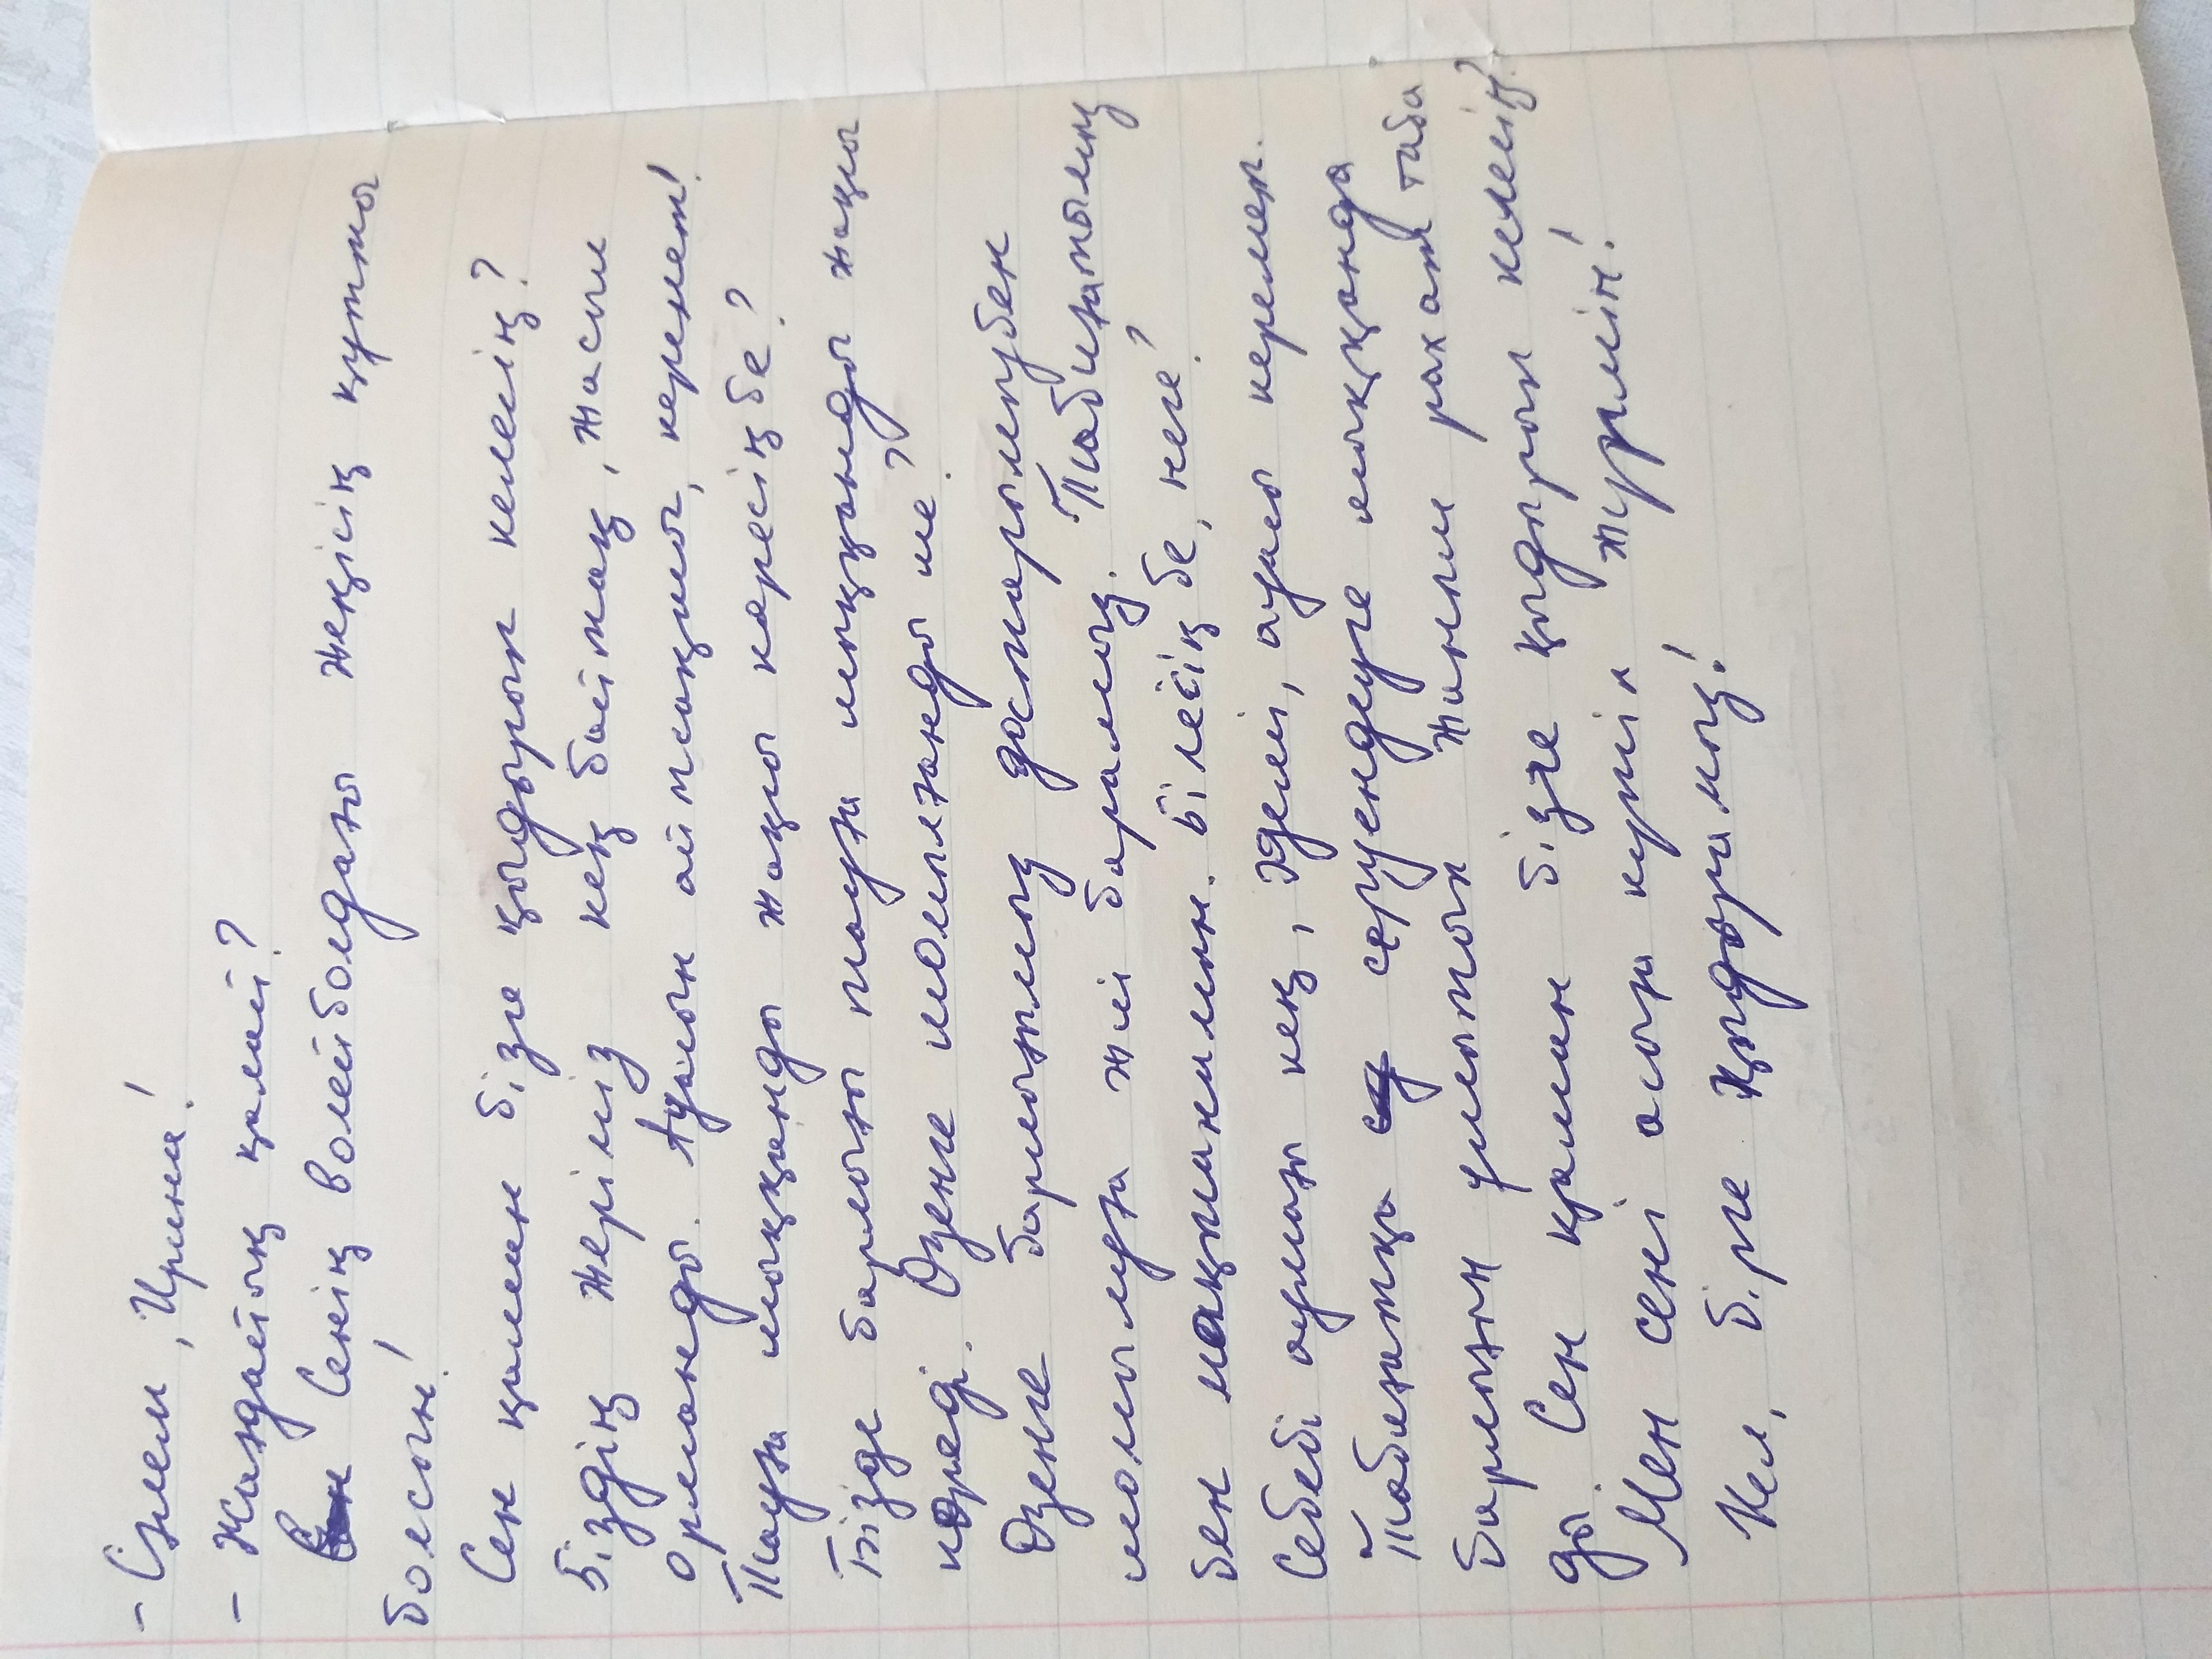 - Сәлем, Ирина!
- Жағдайың қалай?
Сенің волейболдағы жеңісің құтты
болсын!
Сен қашан бізге қыдырып келесің?
Біздің жеріміз кең байтақ, жасыл
орманды. Ауасын айтсаңшы, керемет!
Тауға шыққанды жақсы көресің бе?
Бізде барлығы тауға шыққанды жақсы
көреді. Өзенге шомылғанды ше?
Өзенге барамыз достарымызбен
шомылуға жиі барамыз. Табиғатымыз
бен мақтанамын. Білесің бе, неге?
Себебі орманы кең, әдемі, ауасы керемет.
Табиғатқа серуендеуге шыққанда
барлығы ұмытып жаның рахат таба
ды. Сен қашан бізге қыдырып келесің?
Мен сені асыға күтіп жүрмін!
Кел, бірге қыдырамыз!